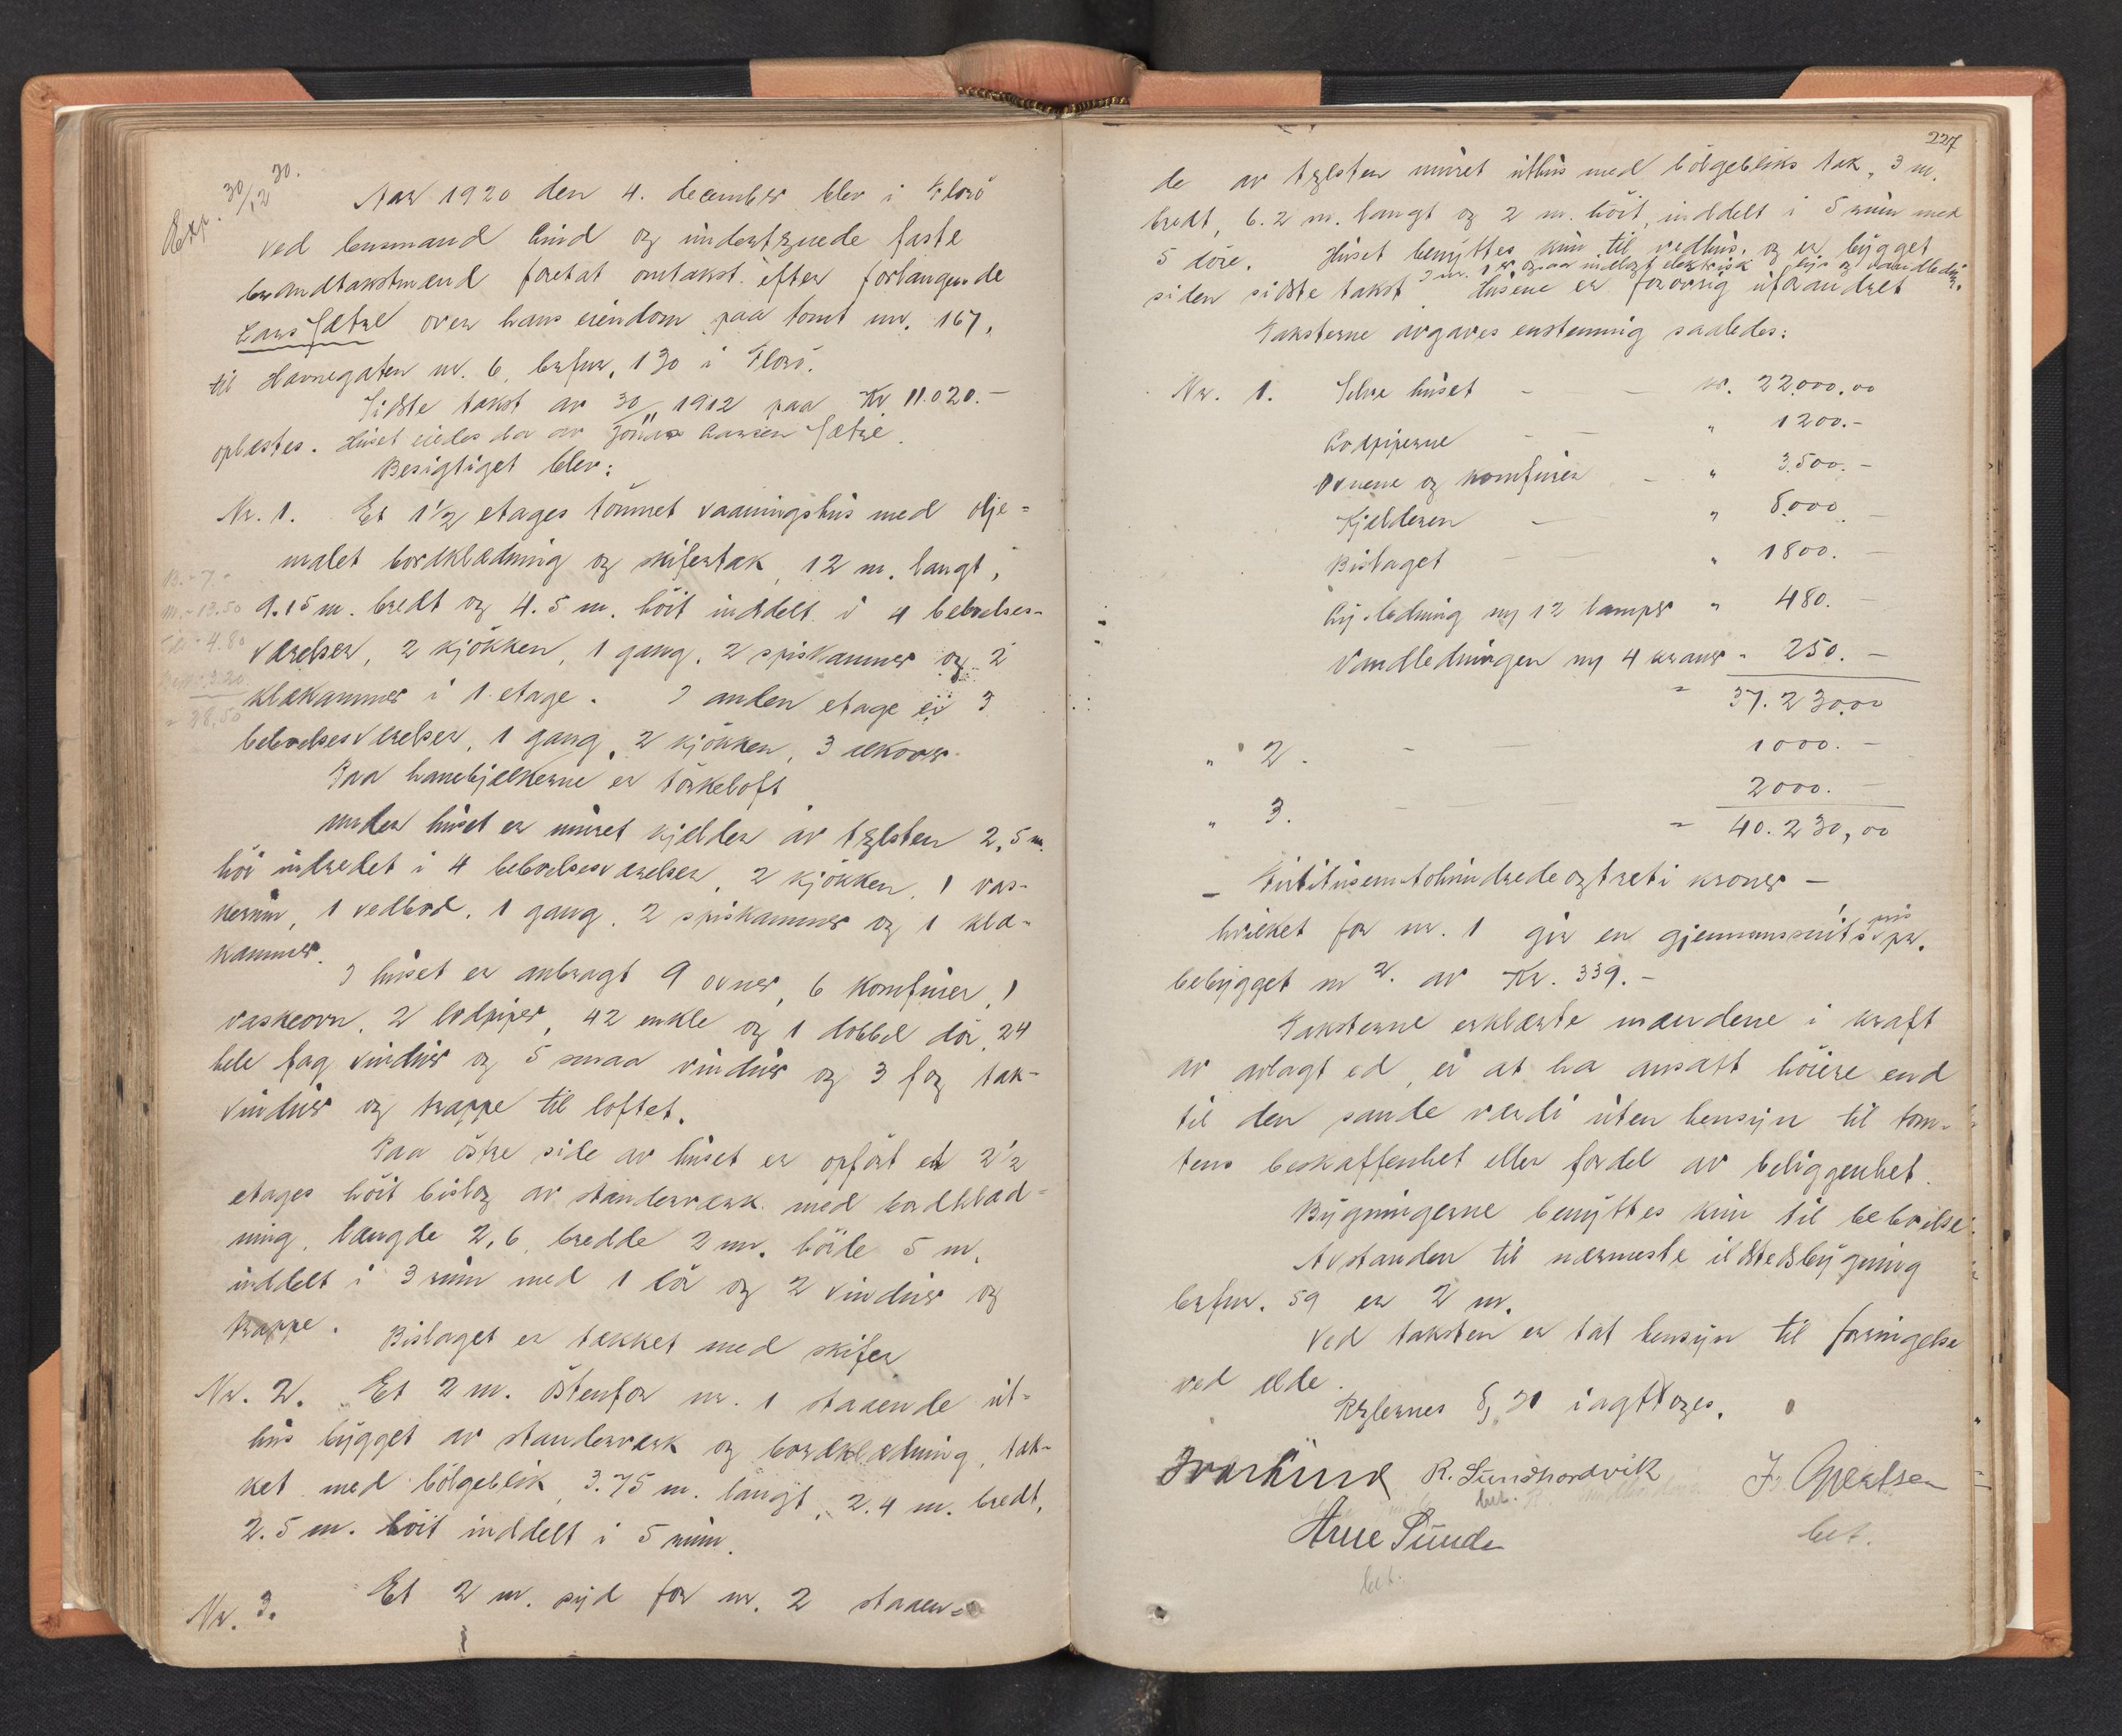 Exp. 30/12 20.
Aar 1920 den 4. december blev i Florö
ved lensmand Lind og undertegnede faste
brandtakstmænd foretat omtakst efter forlangende
Lars Sætre over hans eiendom paa tomt nr. 167,
til Havnegaten nr. 6, brfnr. 130 i Florö.
Sidste takst av 30/11 1912 paa Kr 11.020.-
oplæstes. Huset eiedes da av Jonas Larsen Sætre.
Besigtiget blev:
Nr. 1. Et 1 1/2 etages tömret vaaningshus med olje=
malet bordklædning og skifertak, 12 m. langt,
9.15 m. bredt og 4.5 m. höit inddelt i 4 beboelses-
værelser, 2 kjökken, 1 gang, 2 spiskammer og 2
klækammer i 1. etage. I anden etage er 3
beboelsesværelser, 1 gang, 2 kjökken, 3 alkover.
Paa hanebjælkerne er törkeloft
under huset er muret kjelder av teglsten 2,5 m.
höi indredet i 4 beboelsesværelser, 2 kjökken, 1 vas-
kerum, 1 vedbod, 1 gang, 2 spiskammer og 1 klæ-
kammer.
I huset er anbragt 9 ovner, 6 komfurer, 1
vaskeovn, 2 lodpiper, 42 enkle og 1 dobbel dör, 24
hele fag vinduer og 5 smaa vinduer og 3 fag tak-
vinduer og trappe til loftet.
Paa östre side av huset er opfört et 2 1/2
etages höit bislag av standerværk med bordklæd=
ning, længde 2,6, bredde 2 m. höide 5 m.
inddelt i 3 rum med 1 dör og 2 vinduer og
trappe. Bislaget er tækket med skifer
Nr. 2. Et 2 m. östenfor nr. 1 staaende ut=
hus bygget av standerværk og bordklædning, tæk-
ket med bölgeblik, 3.75 m. langt, 2.4 m. bredt,
2.5 m. höit inddelt i 5 rum.
Nr. 3. Et 2 m. syd for nr. 2 staaen=
B. - 7.-
m. - 13.50
4.80
3.20
= 38.50
227
de av teglsten muret uthus med bölgebliks tak, 3 m.
bredt, 6.2 m. langt og 2 m. höit, inddelt i 5 rum med
5 döre. Huset benyttes kun til vedhus, og er bygget
I nr. 1 er ogsaa indlagt elektrisk lys og vandledn.
siden sidste takst. Husene er forövrig uforandret
Taksterne avgaves enstemmig saaledes:
Nr. 1. Selve huset - - kr. 22.000,00
Lodpiperne - - " 1200.-
Ovnene og komfurer - " 3.500.-
Kjelderen - " 8.000.-
Bislaget - - " 1800.-
Lysledning ny 12 lamper " 480.-
Vandledningen ny 4 kraner " 250.-
= 37.230,00
" 2. - - 1000.-
" 3. - - 2000.-
= 40.230,00
- Firtitusentohundredeogtreti kroner -
hvilket for nr. 1 gir en gjennemsnits pris pr.
bebygget m². av Kr. 339.-
Taksterne erklærte mændene i kraft
av avlagt ed, ei at ha ansatt höiere end
til den sande værdi uten hensyn til tom-
tens beskaffenhet eller fordel av beliggenhet.
Bygningerne benyttes kun til beboelse.
Avstanden til nærmeste ildstedsbygning
brfnr. 59 er 2 m.
Ved taksten er tat hensyn til forringelse
ved ælde.
Reglernes § 21 iagttoges.
Ivar Lind R. Sundhordvik J. Gjertsen
bet. bet.
Arne Sunde
bet.